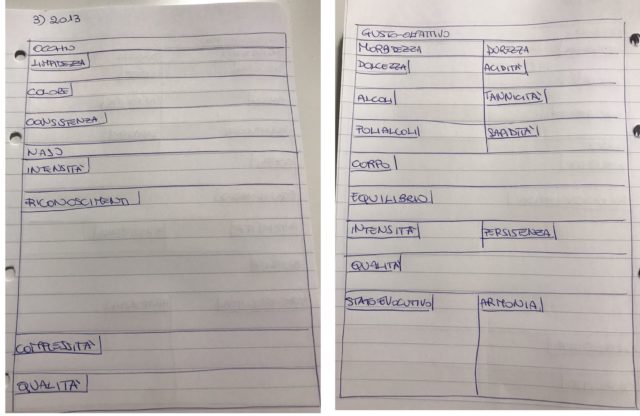 3) 2013
OCCHIO
LIMPIDEZZA
COLORE
CONSISTENZA
NASO
INTENSITÀ
RICONOSCIMENTI
COMPLESSITÀ
QUALITÀ
GUSTO-OLFATTIVO
MORBIDEZZA DUREZZA
DOLCEZZA ACIDITÀ
ALCOLI TANNICITÀ
POLIALCOLI SAPIDITÀ
CORPO
EQUILIBRIO
INTENSITÀ PERSISTENZA
QUALITÀ
STATO EVOLUTIVO ARMONIA